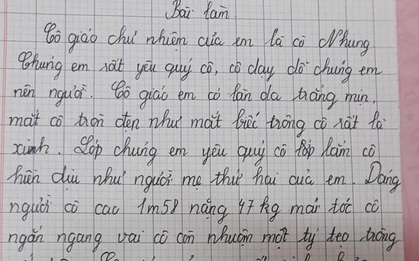 Bài làm
Cô giáo chủ nhiệm của em là cô Nhung
Chúng em rất yêu quý cô, cô dạy dỗ chúng em
nên người. Cô giáo em có làn da trắng mịn,
mắt cô tròn đen như mắt trông cô rất là
xinh. Lớp chúng em yêu quý cô lắm cô
hiền dịu như người mẹ thứ hai của em. Dáng
người cô cao 1m58 nặng 47kg mái tóc cô
ngắn ngang vai cô còn nhuộm một tý tẹo trông